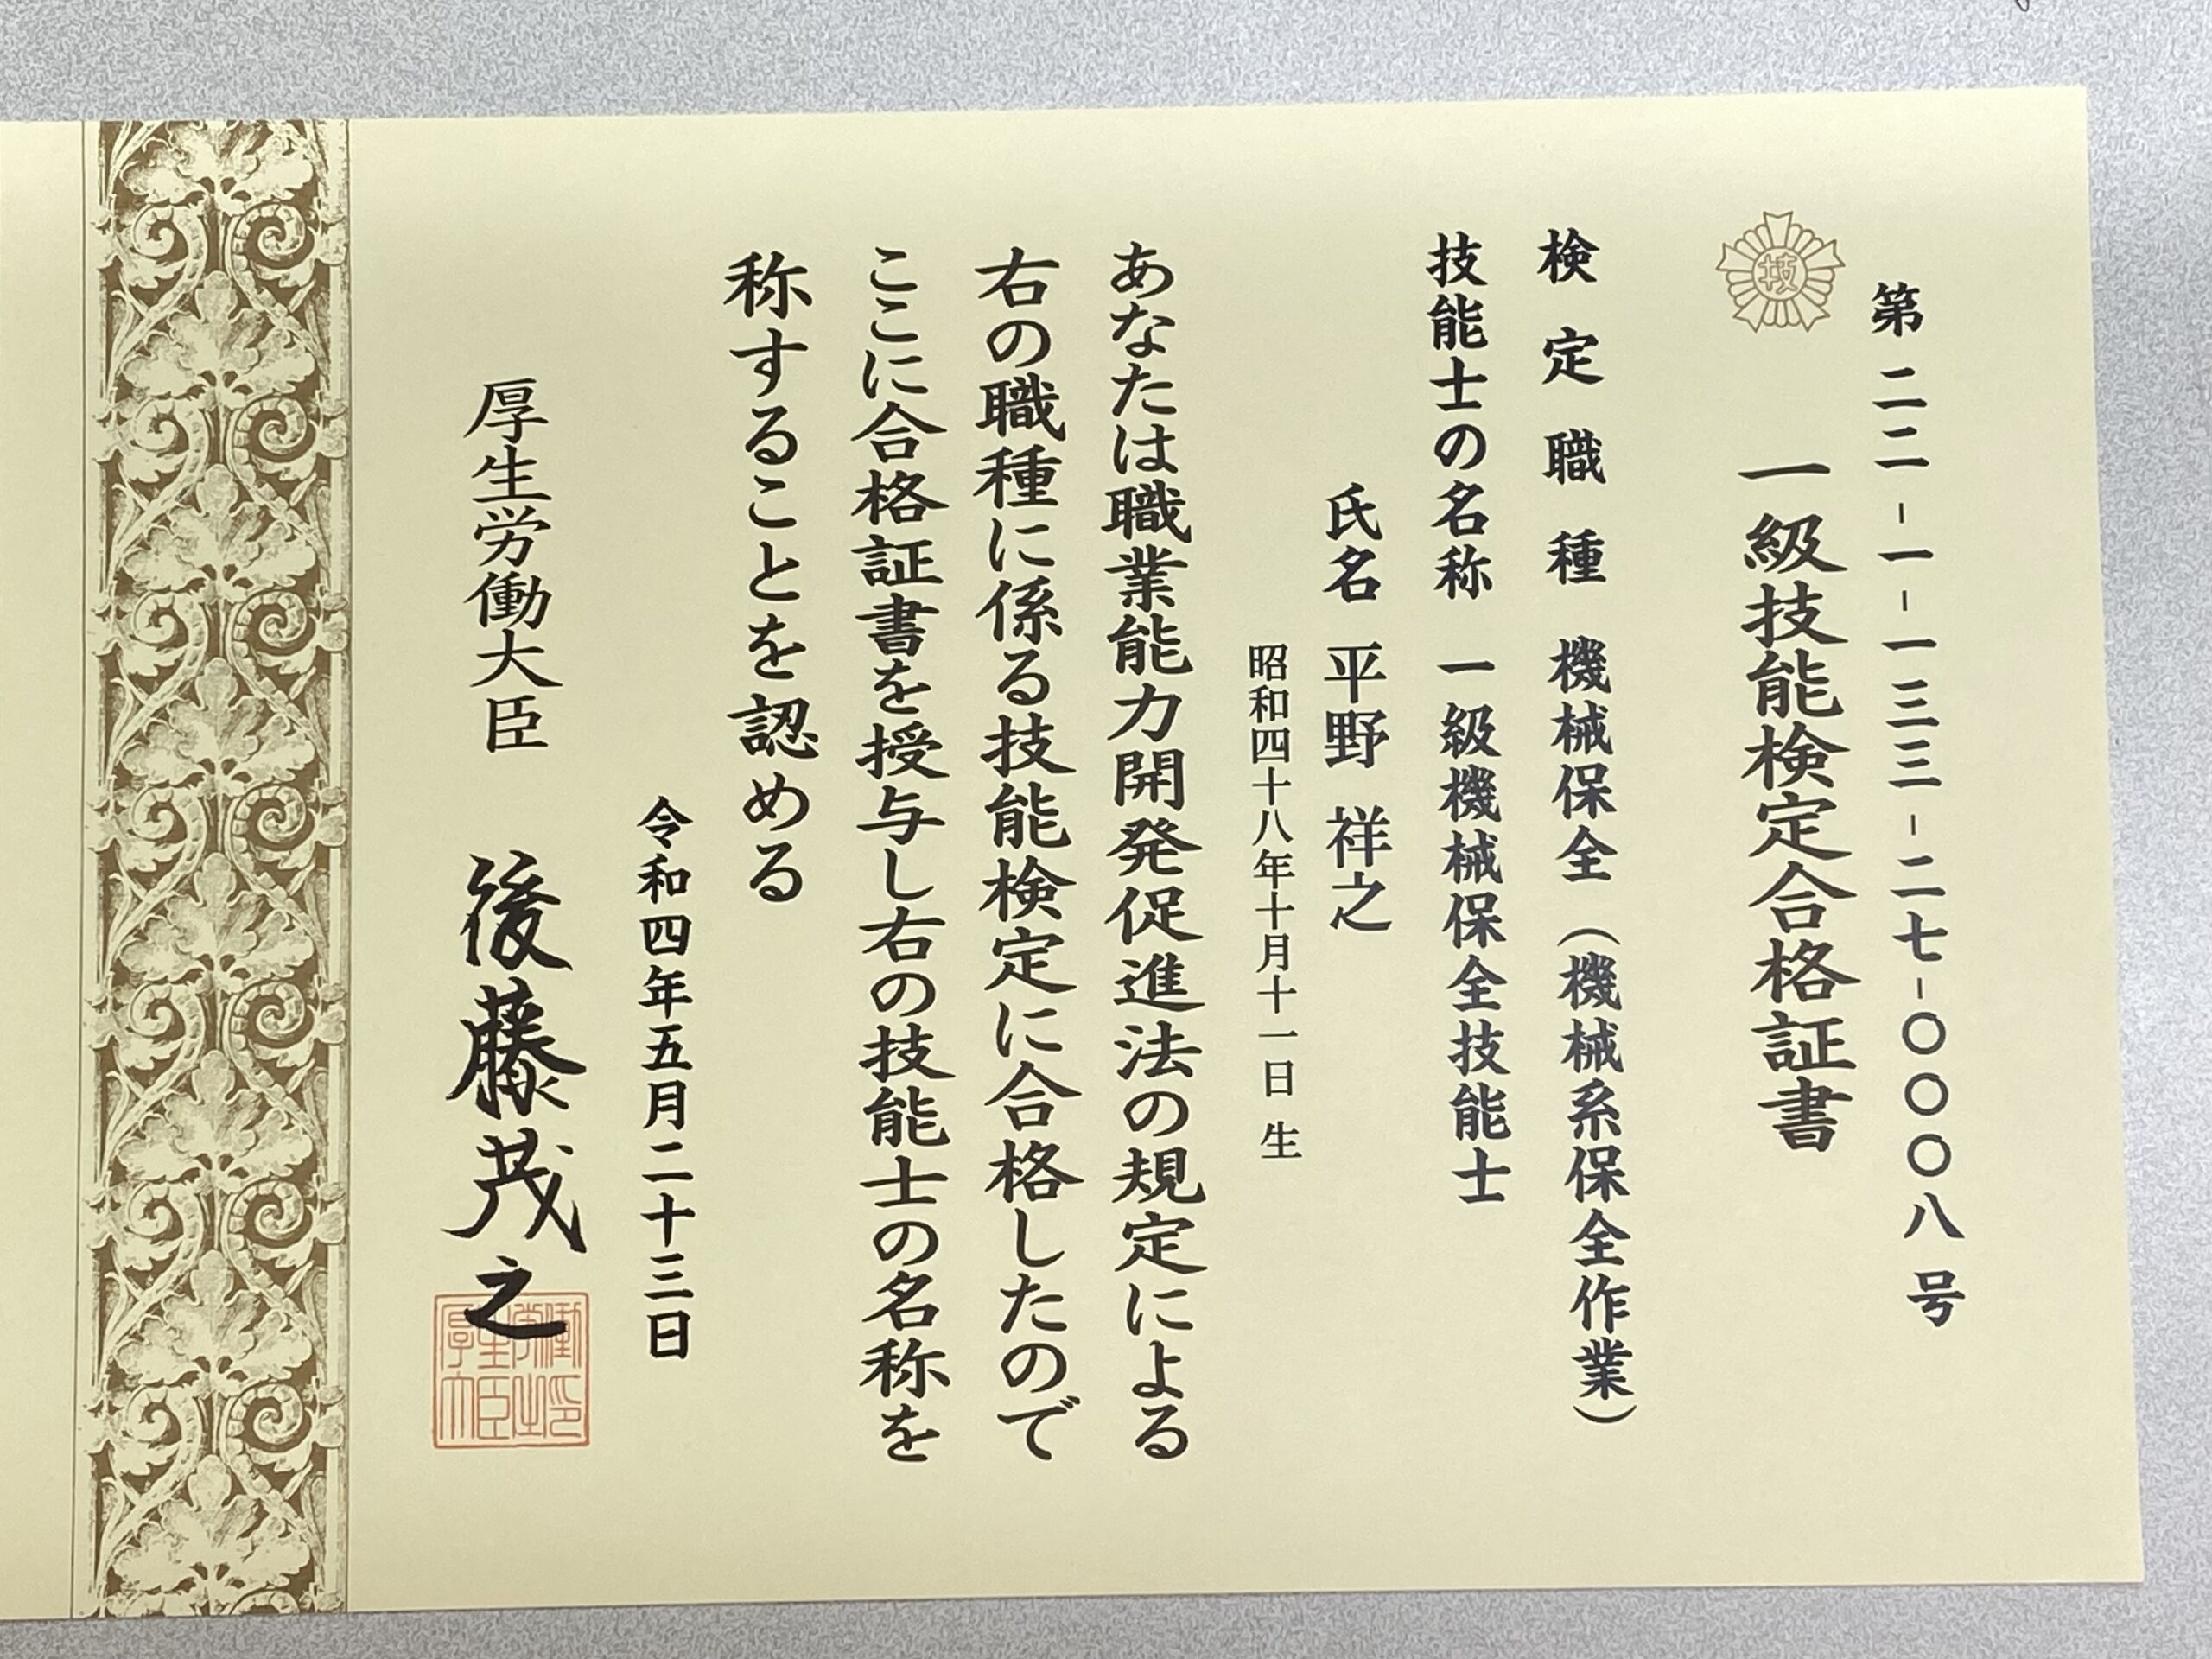 第二二-一-一三三-二七-〇〇〇八号
技
一級技能検定合格証書
検定職種 機械保全（機械系保全作業）
技能士の名称 一級機械保全技能士
氏名 平野 祥之
昭和四十八年十月十一日 生
あなたは職業能力開発促進法の規定による
右の職種に係る技能検定に合格したので
ここに合格証書を授与し右の技能士の名称を
称することを認める
令和四年五月二十三日
厚生労働大臣 後藤茂之